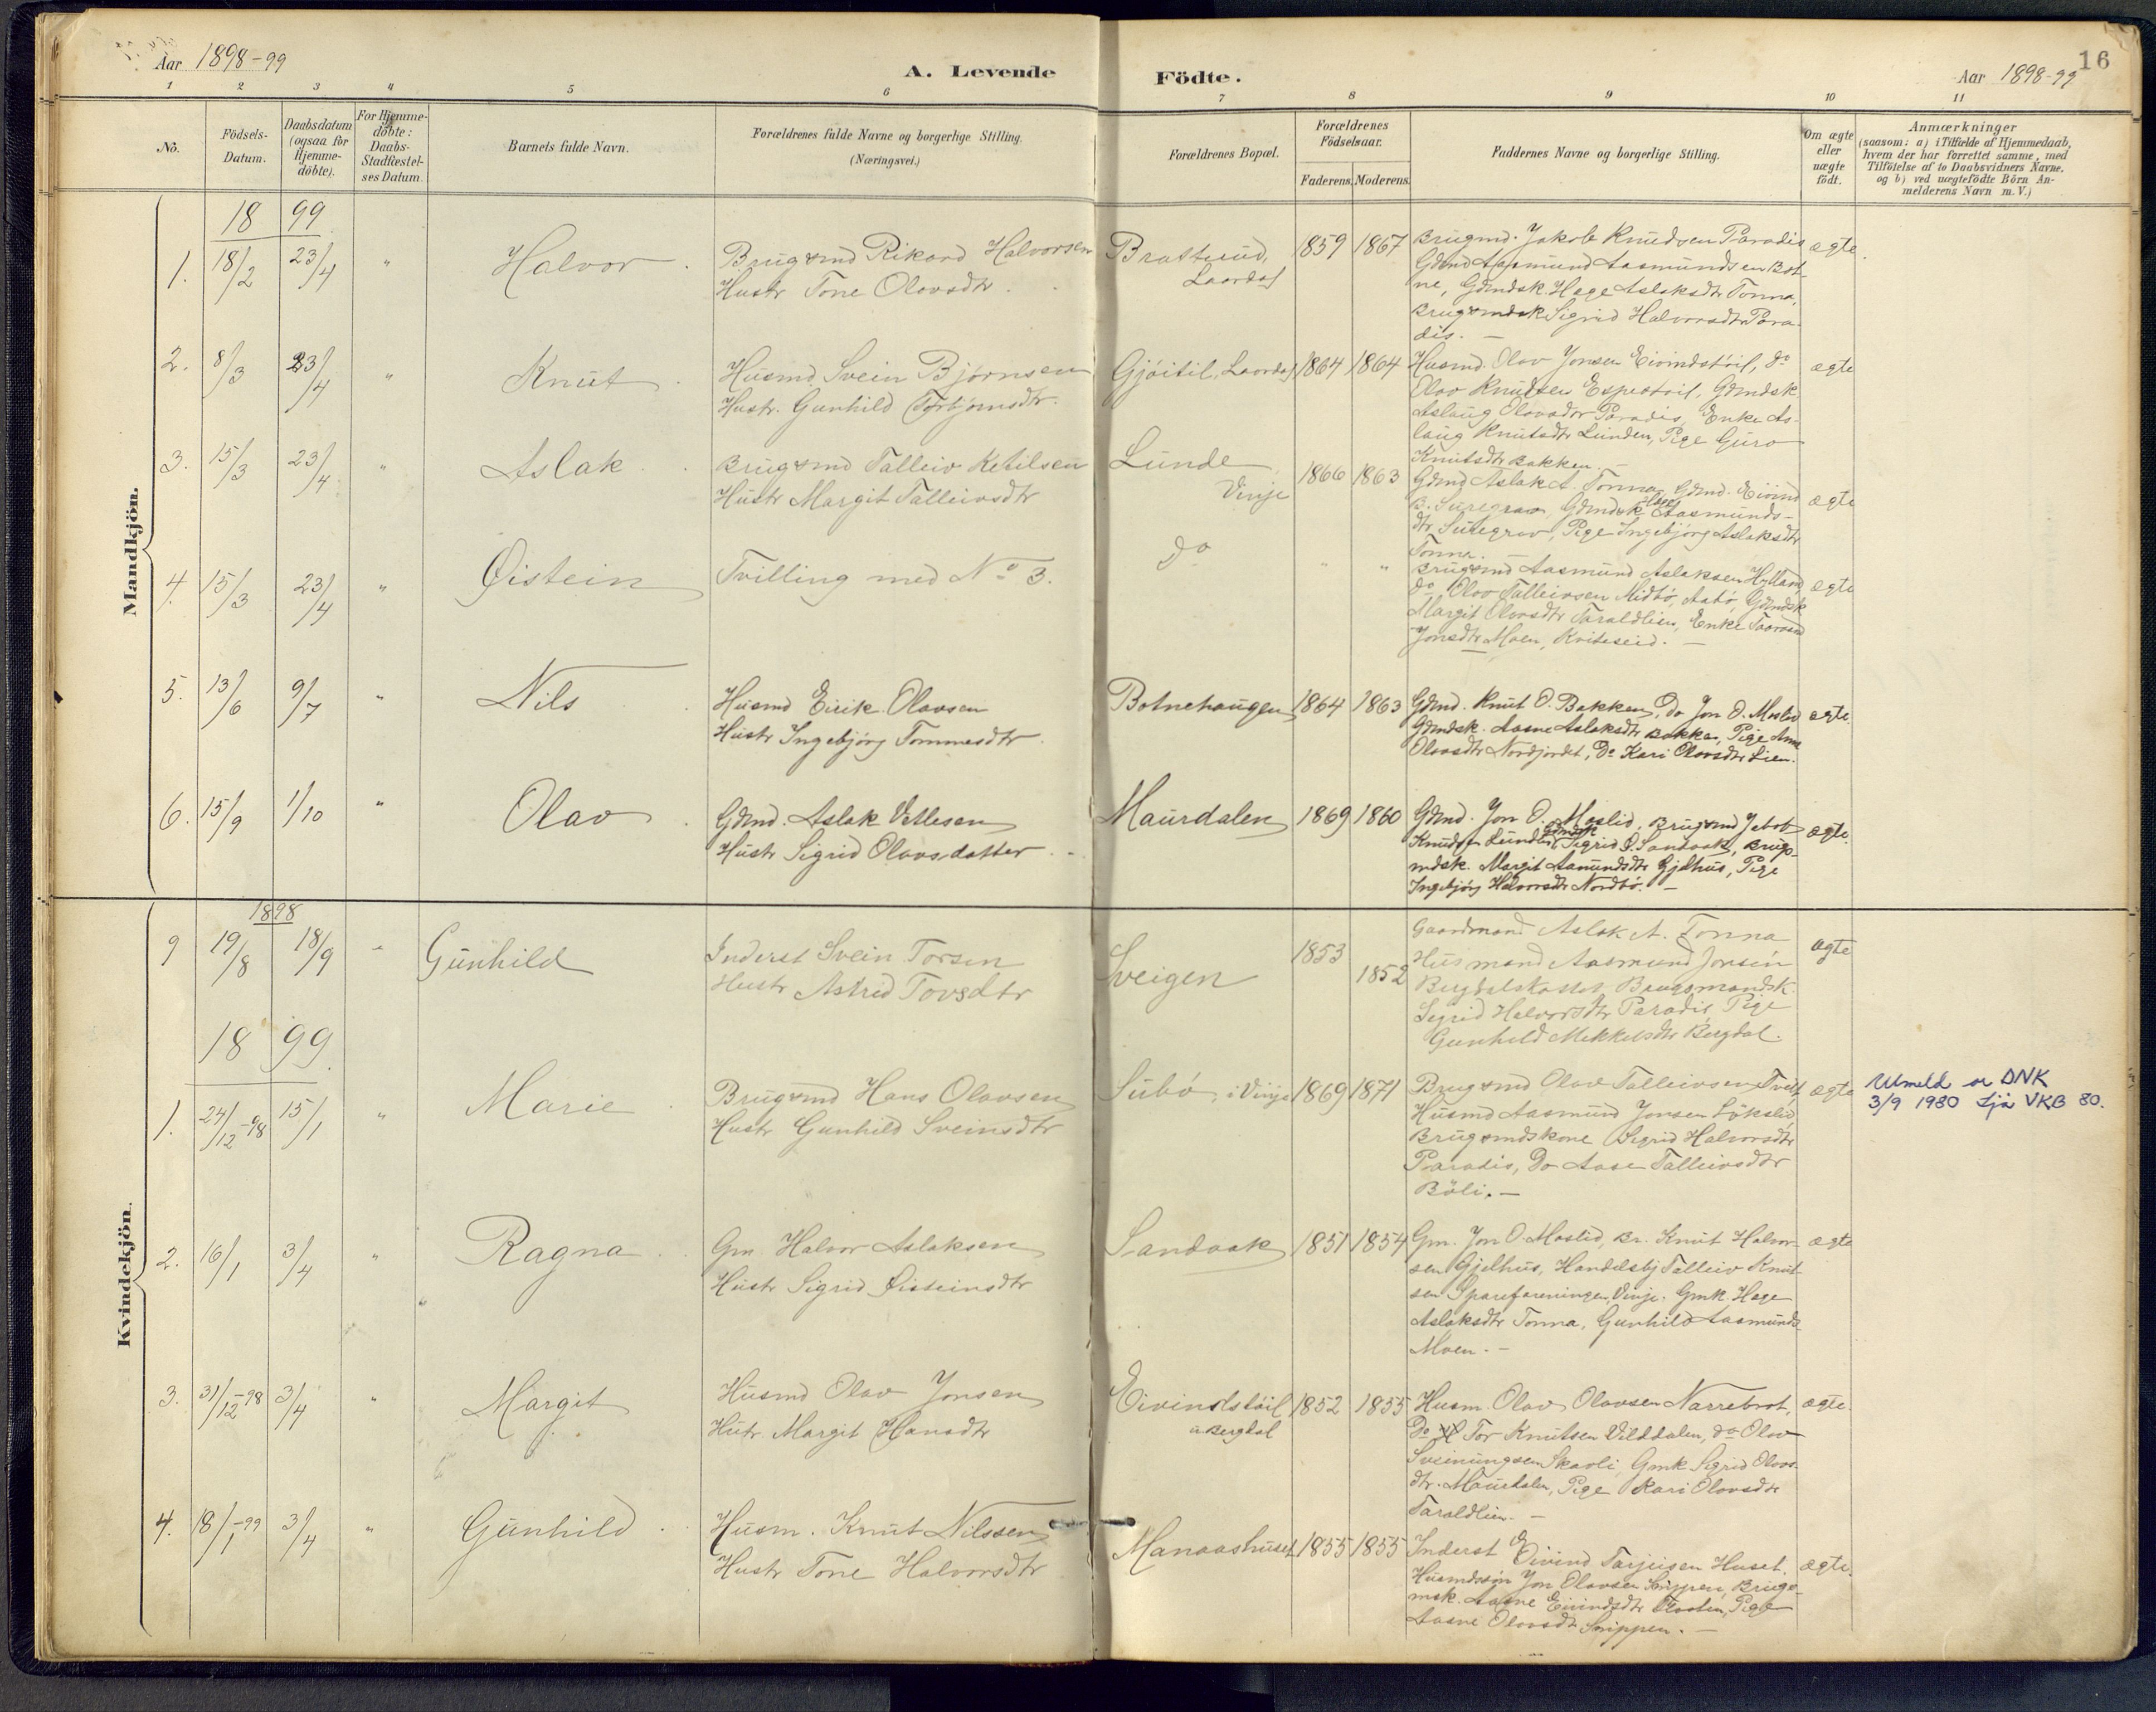 Aar 1898-99
A. Levende Födte.
Aar 1898-99
16
1 2 3 4 5 6 7 8 9 10 11
No.
Födsels-Datum.
Daabsdatum (ogsaa for Hjemmedöbte).
For Hjemmedöbte: Daabs-Stadfæstelses Datum.
Barnets fulde Navn.
Forældrenes fulde Navne og borgerlige Stilling. (Næringsvei.)
Forældrenes Bopæl.
Forældrenes Födselsaar.
Faderens. Moderens.
Faddernes Navne og borgerlige Stilling.
Om ægte eller uægte födt.
Anmærkninger
(saasom: a) i Tilfælde af Hjemmedaab,
hvem der har forrettet samme, med
Tilföielse af to Daabsvidners Navne,
og b) ved uægtefödte Börn Anmelderens Navn m. V.)
Mandkjön.
1899
1. 18/2 23/4 " Halvor
Brugsmd Rikard Halvorsen
Hustr Tone Olavsdtr
Brattuud, Laardal
1859 1867
Brugmd. Jakob Knudsen Paradis
Gdmd Aasmund Aasmundsen Bot-
ne, Gdmdsk. Hæge Aslaksdtr Tonna,
Brugsmdsk Sigrid Halvorsdtr Para-
dis. —
ægte.
2. 8/3 23/4 " Knut
Husmd. Svein Bjørnsen
Hustr. Gunhild Torbjørnsdtr.
Gjöitil, Laardal
1864 1864
Husmd. Olav Jonsen Eivindstöil, do
Olav Knudsen Espestöil, Gdmdsk
Aslaug Olavsdtr Paradis, Enke As-
laug Knutsdtr Lunden, Pige Guro
Knutsdtr Bakken. —
ægte
3. 15/3 23/4 " Aslak
Brugsmd Talleiv Ketilsen
Hustr Margit Talleivsdtr
Lunde Vinje
1866 1863
Gdmd Aslak A. Tonna, Gdmd. Eivind
B. Suregrav, Gdmdsk Aasmunds-
dtr Suregrav, Pige Ingebjörg Aslaksdtr
Tonna. —
ægte
4. 15/3 23/4 " Øistein
Tvilling med No 3.
do " "
Brugsmd Aasmund Aslaksen Hylland,
do Olav Talleivsen Midbö, Aabö, Gdmdsk
Margit Olavsdtr Taraldlien, Enke
Jonsdtr Moen, Kviteseid. —
ægte
5. 13/6 9/7 " Nils
Husmd Eirik Olavsen
Hustr Ingebjörg Tommesdtr.
Botnehaugen
1864 1863
Gdmd. Knut O. Bakken, Do Jon O. Moslid
Gdmdsk. Aasne Aslaksdtr Bakka, Pige Anne
Olavsdtr Nordjordet, Do Kari Olavsdtr Lien.
ægte.
6. 15/9 1/10 " Olav
Gdmd. Aslak Vetlesen
Hustr Sigrid Olavsdatter.
Maurdalen
1869 1860
Gdmd. Jon O. Moslid, Brugsmd Jakob
Knudsen Lunden, Gdmdsk Sigrid Ö. Sandvak, Brugs-
mdsk. Margit Aamundsdtr Gjelhus, Pige
Ingebjörg Halvorsdtr Nordbö. —
ægte.
Kvindekjön.
1898
9 19/8 18/9 " Gunhild
Inderst Svein Torsen
Hustr Astrid Tovsdtr
Sveigen
1853 1852
Gaardmand Aslak A. Tonna
Husmand Aasmund Jonsen
Brugsmandsk.
Sigrid Halvorsdtr Paradis, Pige
Gunhild Mekkelsdtr Bergdal.
ægte
1899
1. 24/12-98 15/1 " Marie
Brugsmd Hans Olavsen
Hustr Gunhild Sveinsdtr
Subö, i Vinje
1869 1871
Brugsmd Olav Talleivsen Tveit,
Husmd Aasmund Jonsen Lökslid,
Brugsmdskone Sigrid Halvorsdtr
Paradis, Do Aase Talleivsdtr
Böli. —
ægte
Utmeld or DNK
3/9 1980 sjå VKB 80.
2. 16/1 3/4 " Ragna
Gm. Halvor Aslaksen
Hustr Sigrid Øisteinsdtr
Sandvak
1851 1854
Gm. Jon O. Moslid, Br. Knut Halvor-
sen Gjelhus, Handelsbj Talleiv Knut-
sen Spareforeningen, Vinje. Gmk. Hæge
Aslaksdtr Tonna, Gunhild Aasmundsd
Moen. —
ægte
3. 31/12-98 3/4 " Margit
Husmd Olav Jonsen
Hutr. Margit Hansdtr
Eivindstöil
u. Bergdal
1852 1855
Husm. Olav Olavsen Narrebrot,
Do Tor Knutsen Vilddalen, do Olav
Sveinungsen Skavli, Gmk Sigrid Olavs-
dtr. Maurdalen, Pige Kari Olavsdtr
Taraldlien. —
ægte.
4. 18/1-99 3/4 " Gunhild
Husm. Knut Nilssen
Hustr Tone Halvorsdtr
Manaashuset
1855 1855
Inderst Eivind Tarjeisen Huset.
Husmdssön Jon Olavsen Snippen, Brugs-
msk. Aasne Eivindsdtr Pige
Aasne Olavsdtr Snippen. —
ægte.